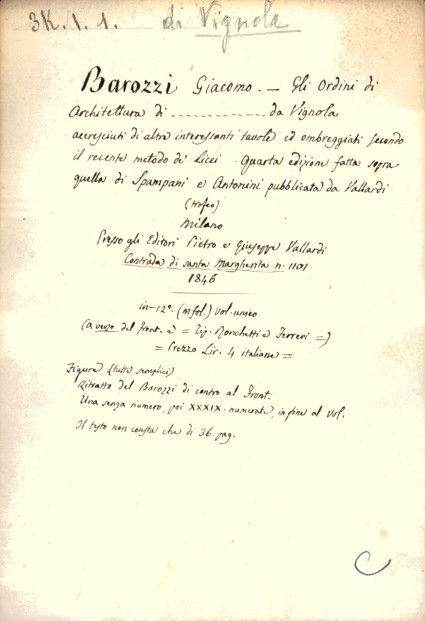 3K. 1. 1. di Vignola
Barozzi Giacomo. — Gli Ordini di
Architettura di ------------------ da Vignola
accresciuti di altre interessanti tavole ed ombreggiati secondo
il recente metodo de' Licei. Quarta edizione fatta sopra
quella di Spampani e Antonini pubblicata da Vallardi
(trofeo)
Milano
Presso gli Editori Pietro e Giuseppe Vallardi
Contrada di santa Margherita n. 1101
1846
in-12°. (infol.) vol. unico
(a verso del front. è = Tip. Ronchetti e Ferreri =)
= Prezzo Lir. 4 italiane =
Figure (tutte semplici)
Ritratto del Barozzi di contro al Front.
Una senza numero, poi XXXIX. numerate, in fine al vol.
Il testo non consta che di 36 pag.
C